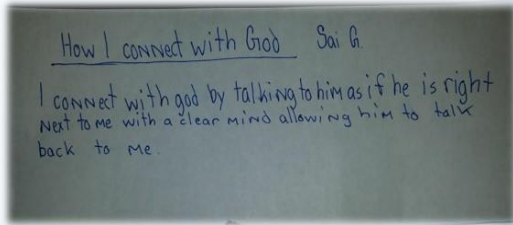 How I connect with God Sai G.
I connect with god by talking to him as if he is right
Next to me with a clear mind allowing him to talk
back to me.